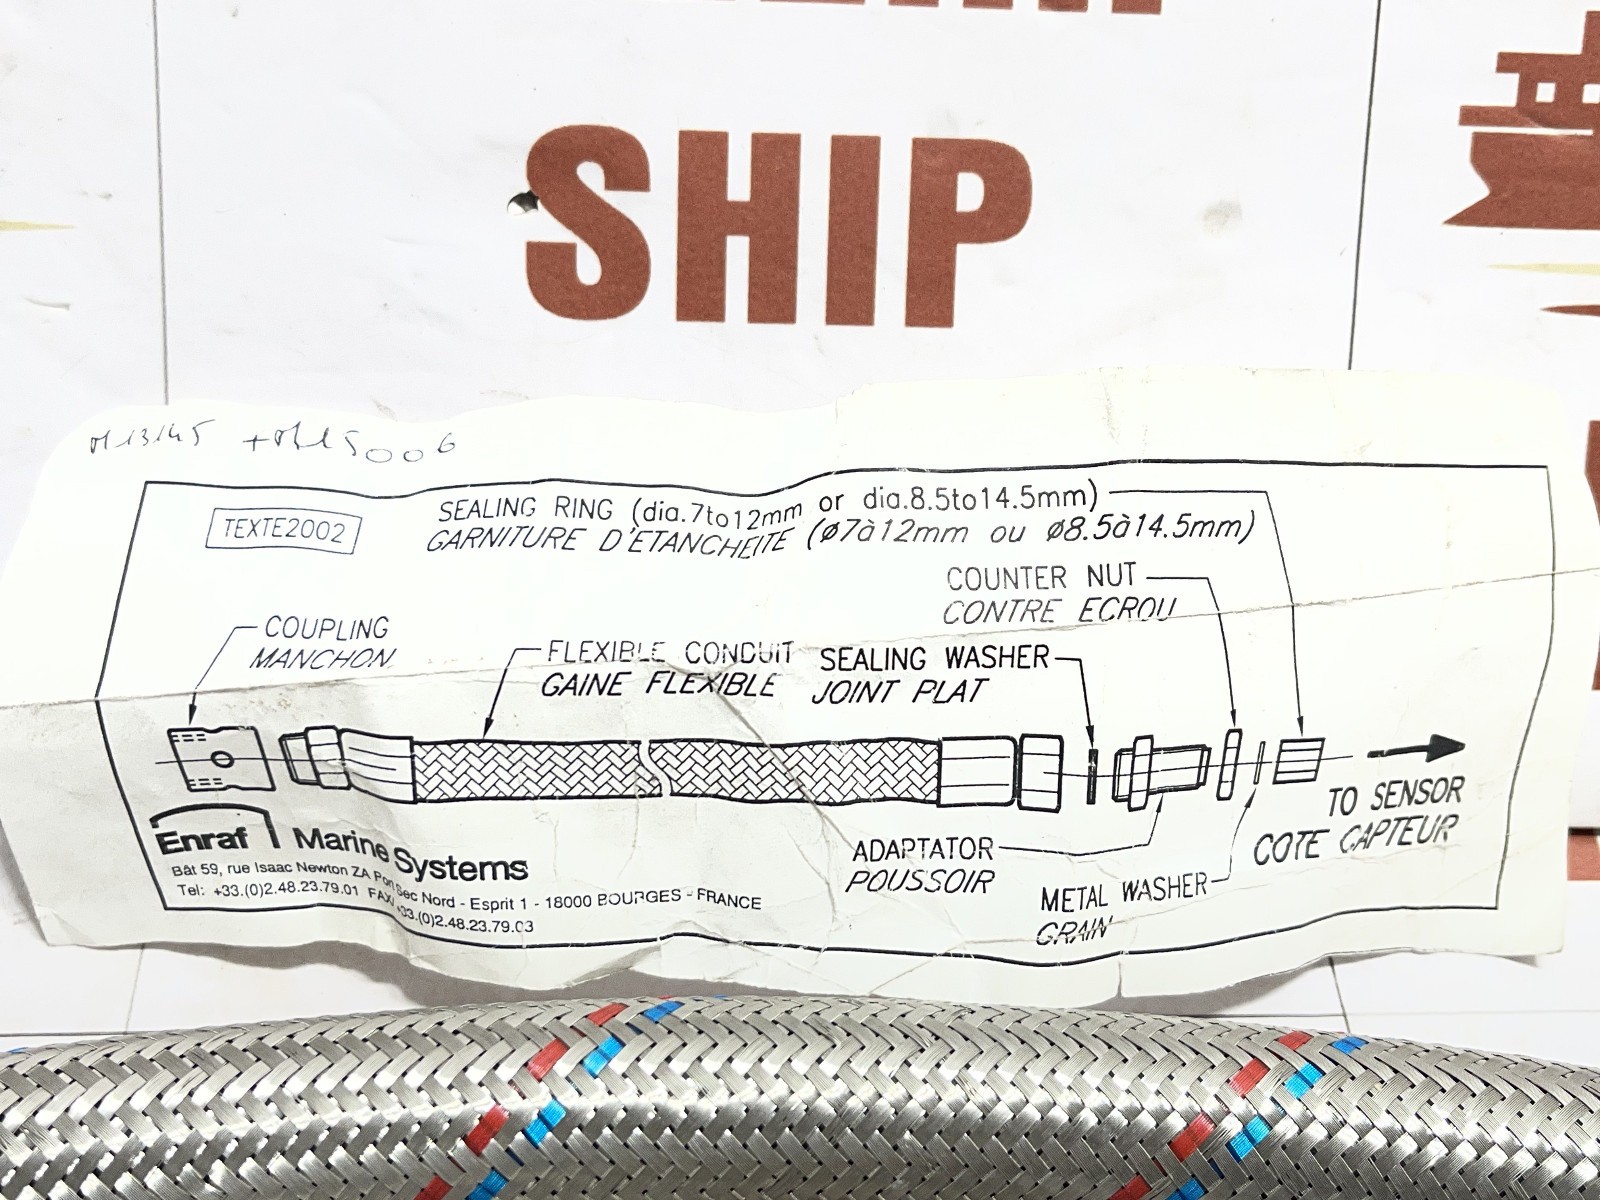 SHIP
TEXTE2002
SEALING RING (dia.7to12mm or dia.8.5to14.5mm)
GARNITURE D'ETANCHEITE (ø7à12mm ou ø8.5à14.5mm)
COUNTER NUT
CONTRE ECROU
COUPLING
MANCHON
FLEXIBLE CONDUIT
GAINE FLEXIBLE
SEALING WASHER
JOINT PLAT
TO SENSOR
COTE CAPTEUR
ADAPTATOR
POUSSOIR
METAL WASHER
GRAIN
Enraf Marine Systems
Bât 59, rue Isaac Newton ZA Port Sec Nord - Esprit 1 - 18000 BOURGES - FRANCE
Tel: +33.(0)2.48.23.79.01 FAX +33.(0)2.48.23.79.03